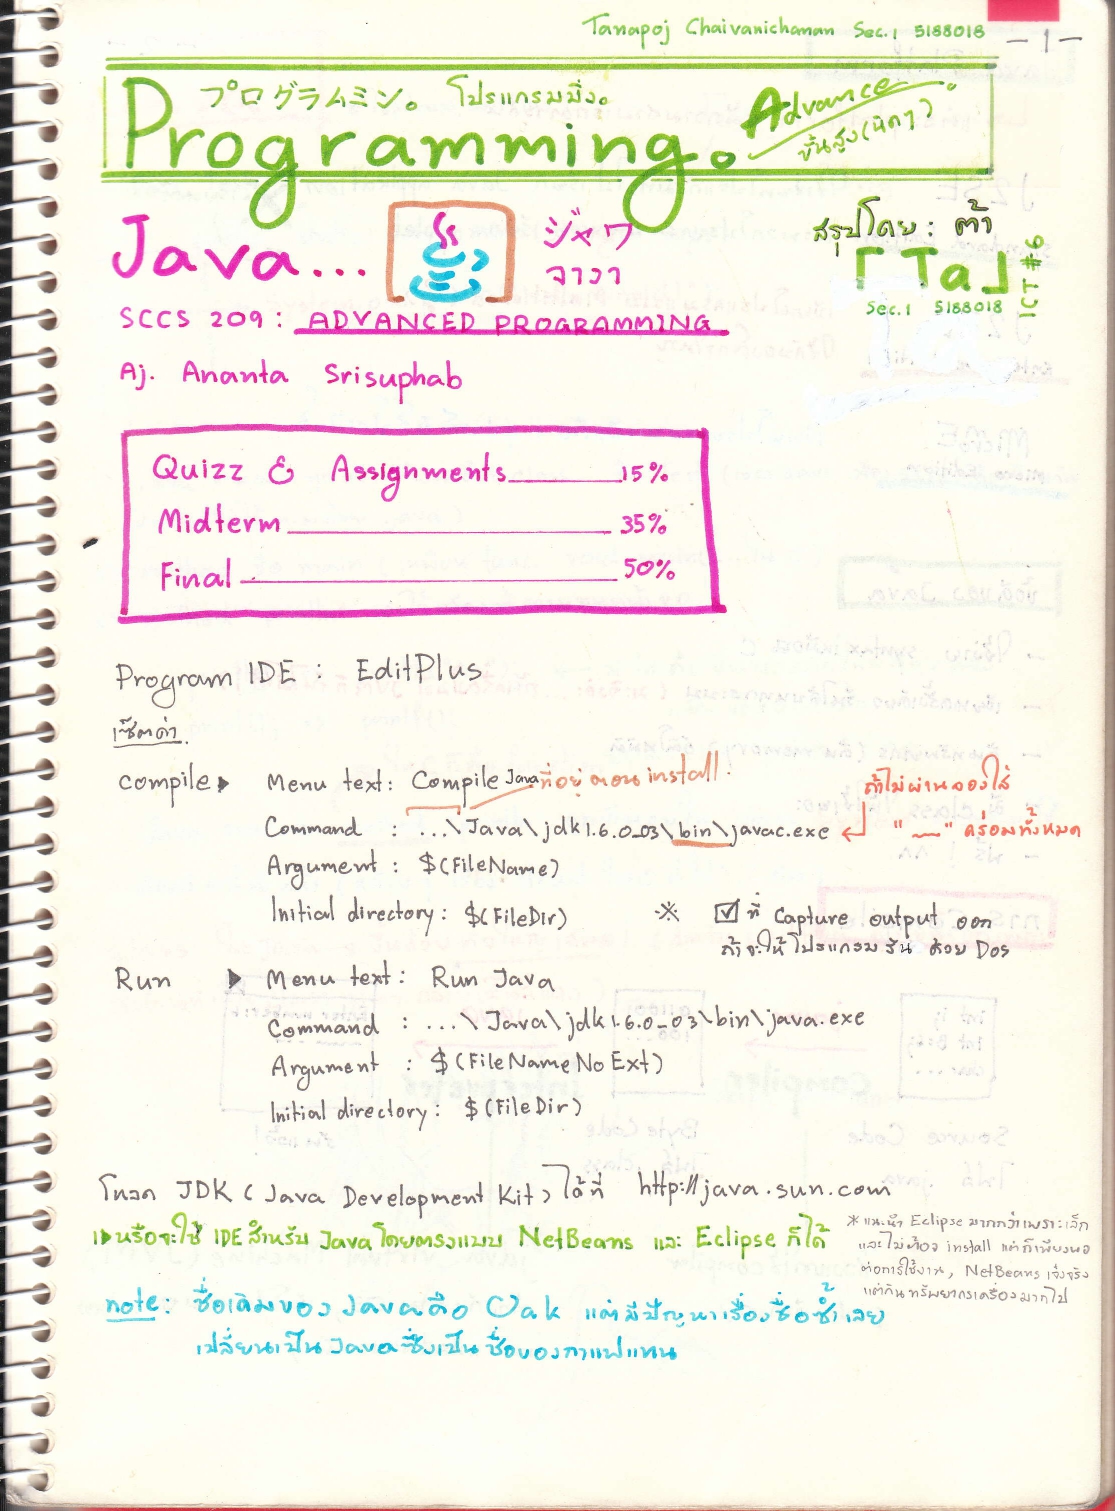 Tanapoj Chaivanichanan Sec.1 5188018 -1-
プログラムミン。 โปรแกรมมิ่ง。
Programming。 Advance
ขั้นสูง(นิดๆ)
Java... ジャワ
จาวา
สรุปโดย: ต้า
「Ta」
Sec.1 5188018
ICT #6
SCCS 209: ADVANCED PROGRAMMING
Aj. Ananta Srisuphab
Quizz & Assignments 15%
Midterm 35%
Final 50%
Program IDE : EditPlus
เซ็ตค่า
compile Menu text: Compile Java ที่อยู่ตอน install
Command : ...\Java\jdk1.6.0_03\bin\javac.exe
ถ้าไม่ผ่านลองใส่
" " คร่อมทั้งหมด
Argument : $(FileName)
Initial directory: $(FileDir)
※ ☑ ที่ Capture output ออก
ถ้าจะให้โปรแกรมรันด้วย Dos
Run Menu text: Run Java
Command : ...\Java\jdk1.6.0_03\bin\java.exe
Argument : $(FileNameNoExt)
Initial directory: $(FileDir)
โหลด JDK (Java Development Kit) ได้ที่ http://java.sun.com
หรือจะใช้ IDE สำหรับ Java โดยตรงแบบ NetBeans และ Eclipse ก็ได้
* แนะนำ Eclipse มากกว่าเพราะเล็ก
และไม่ต้อง install แต่ก็เพียงพอ
ต่อการใช้งาน, NetBeans เจ๋งจริง
แต่กินทรัพยากรเครื่องมากไป
note: ชื่อเดิมของ Java คือ Oak แต่มีปัญหาเรื่องชื่อซ้ำเลย
เปลี่ยนเป็น Java ซึ่งเป็นชื่อของกาแฟแทน